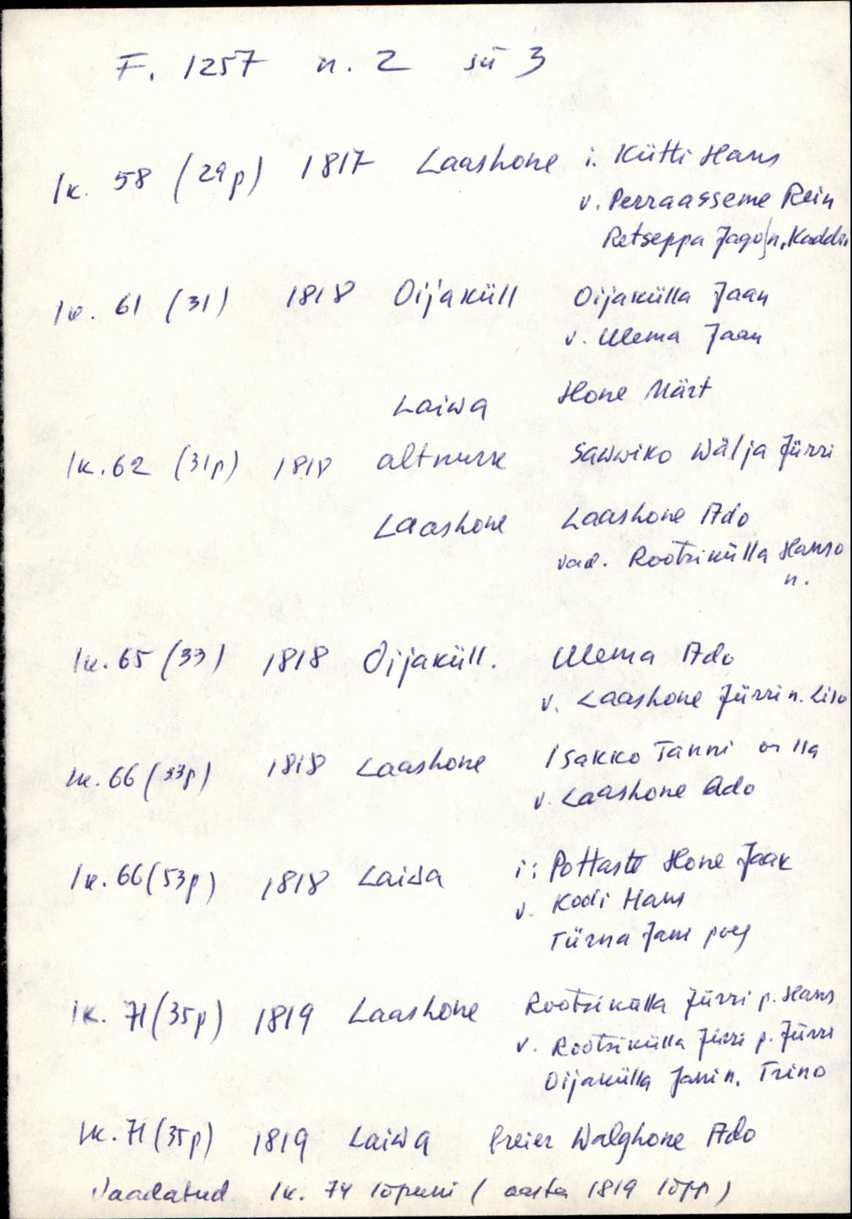 F. 1257 n. 2 sü 3
lk. 58 (29p) 1817 Laashone i. Kütti Hans
v. Perraasseme Rein
Retseppa Jago n. Kaddri
lk. 61 (31) 1818 Oijaküll Oijakülla Jaan
v. Ulema Jaan
Laiwa Hone Märt
lk. 62 (31p) 1818 altnurse Sawwiko Wälja Jürri
Laashone Laashone Ado
vad. Rootsikülla Hanso
n.
lk. 65 (33) 1818 Oijaküll. Ulema Ado
v. Laashone Jürri n. Liso
lk. 66 (33p) 1818 Laashone Isakko Tanni
v. Laashone Ado
lk. 66 (53p) 1818 Laiwa i: Pottaste Hone Jaak
v. Kodi Hans
Türna Jani poeg
lk. 71 (35p) 1819 Laashone Rootsikülla Jürri p. Hans
v. Rootsikülla Jürri p. Jürri
Oijakülla Jani n. Trino
lk. 71 (35p) 1819 Laiwa Greier Walghone Ado
Vaadatud lk. 74 lõpuni (aasta 1819 lõpp)